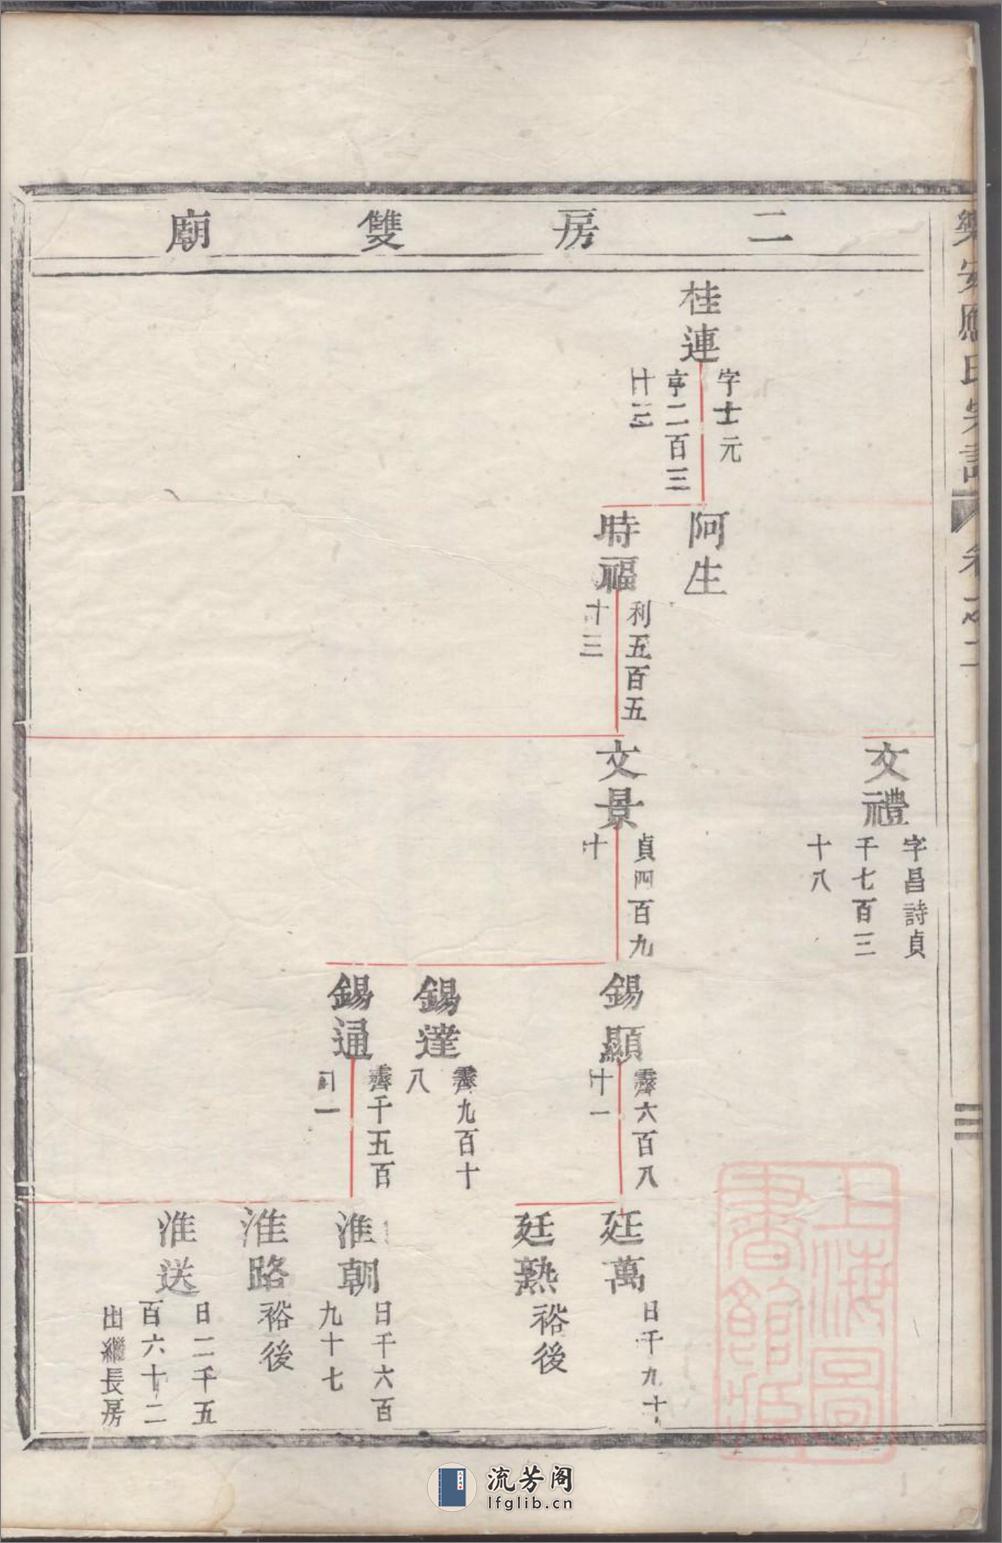 二房雙廟
桂連
字士元
亨二百三
廿三
阿生
時福
利五百五
十三
文禮
字昌詩貞
千七百三
十八
文景
貞四百九
十
錫顯
霽六百八
十一
錫達
霽九百十
八
錫通
霽千五百
一
廷萬
日千九十
廷熟
裕後
淮朝
日千六百
九十七
淮路
裕後
淮送
日二千五
百六十二
出繼長房
卷之二
三
上海圖
書館藏
流芳阁
lfglib.cn